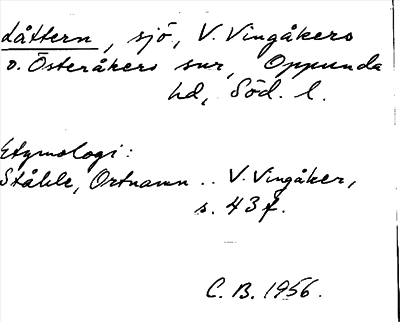 Låttern, sjö, V. Vingåkers
o. Österåkers snr, Oppunda
hd, Söd. l.
Etymologi:
Ståhle, Ortnamn .. V. Vingåker,
s. 43 f.
C. B. 1956.